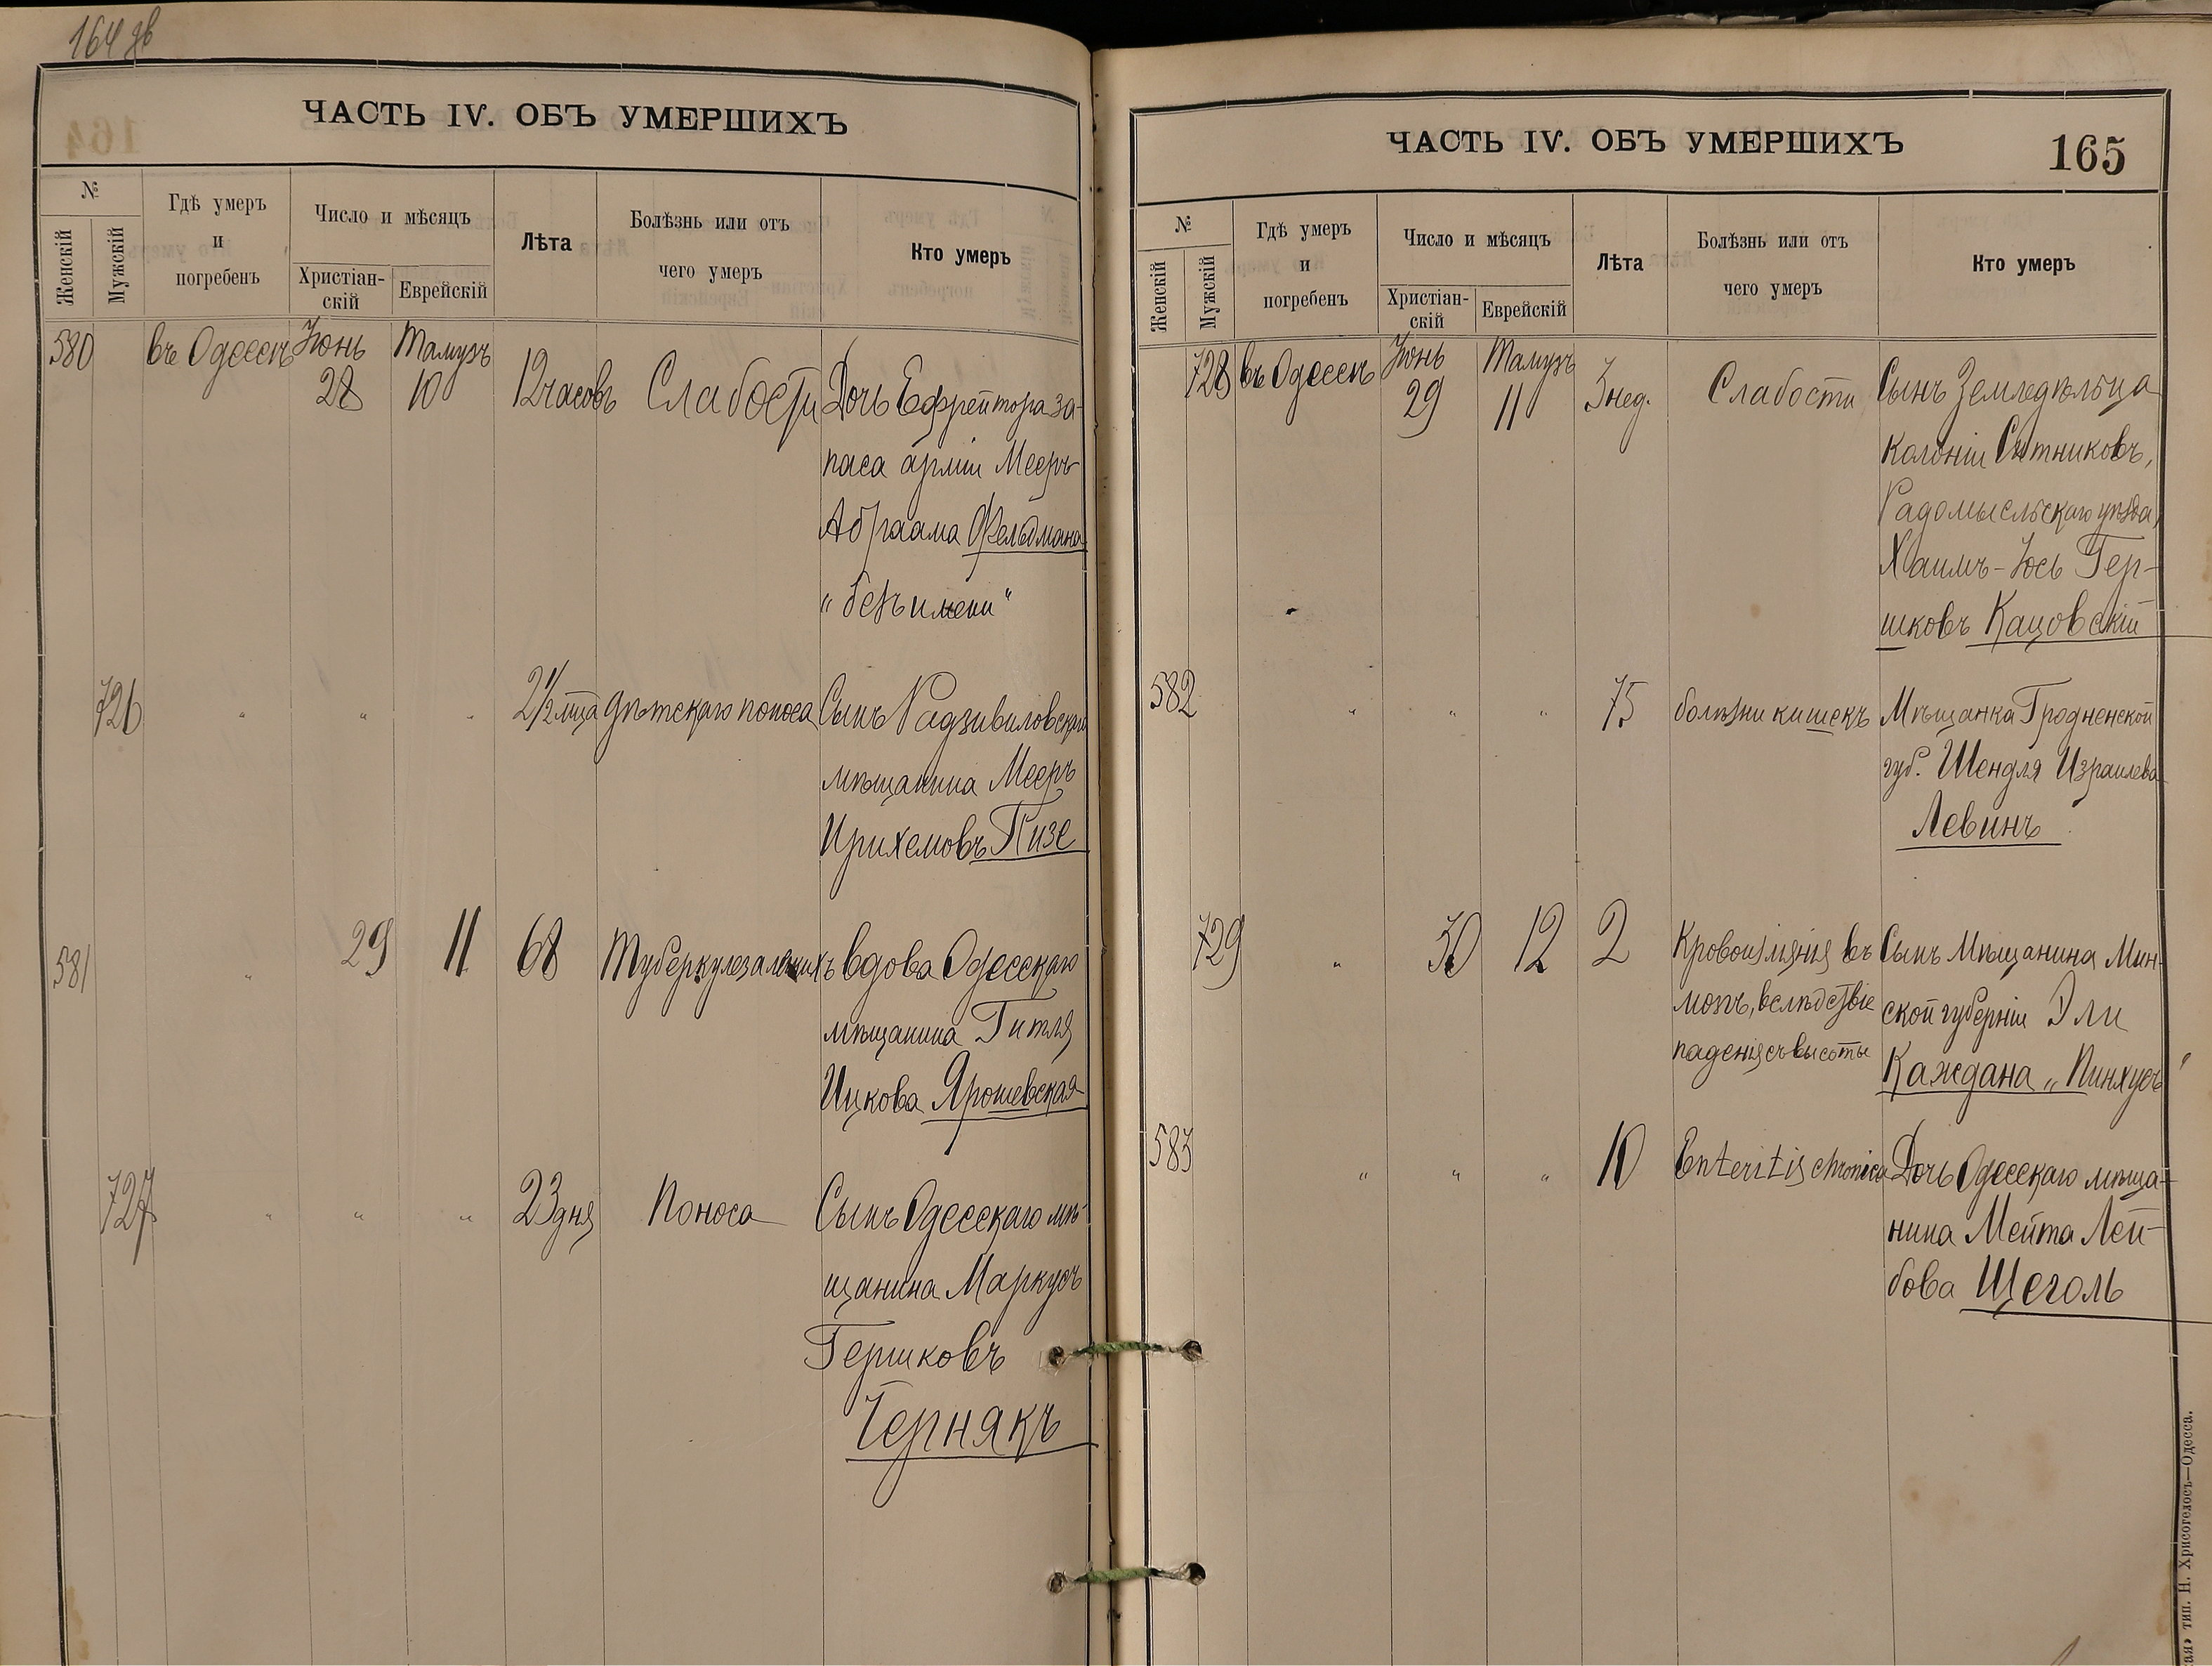 164 об
ЧАСТЬ IV. ОБЪ УМЕРШИХЪ
№
Женскій
Мужскій
Гдѣ умеръ
и
погребенъ
Число и мѣсяцъ
Христіан-
скій
Еврейскій
Лѣта
Болѣзнь или отъ
чего умеръ
Кто умеръ
580 въ Одессѣ Іюнь 28 Тамузъ 10 12 часовъ Слабости Дочь Ефрейтора за-
паса арміи Мееръ
Абраама Фельдмана
"безъ имени"
726 " " " 2 1/2 мѣца дѣтскаго поноса Сынъ Радзивиловскаго
мѣщанина Мееръ
Ирихемовъ Пизе
581 " 29 11 68 Туберкулеза легкихъ вдова Одесскаго
мѣщанина Гитля
Ицкова Ярошевская
727 " " " 23 дня Поноса Сынъ Одесскаго мѣ-
щанина Маркусъ
Гершковъ
Чернякъ
ЧАСТЬ IV. ОБЪ УМЕРШИХЪ
165
№
Женскій
Мужскій
Гдѣ умеръ
и
погребенъ
Число и мѣсяцъ
Христіан-
скій
Еврейскій
Лѣта
Болѣзнь или отъ
чего умеръ
Кто умеръ
728 въ Одессѣ Іюнь 29 Тамузъ 11 3 нед. Слабости Сынъ Земледѣльца
колоніи Ситниковъ,
Радомысльскаго уѣзда,
Хаимъ-Іось Гер-
шковъ Кацовскій
582 " " " 75 болѣзни кишекъ Мѣщанка Гродненской
губ. Шендля Израилева
Левинъ
729 " 30 12 2 Кровоизліянія въ Сынъ Мѣщанина Мин-
мозгъ, вслѣдствіе ской губерніи Эли
паденія съ высоты Каждана „Пинхусъ"
583 " " " 10 Enteritis chronica Дочь Одесскаго мѣща-
нина Мейта Лей-
бова Щеголь
тип. Н. Хрисогелосъ—Одесса.